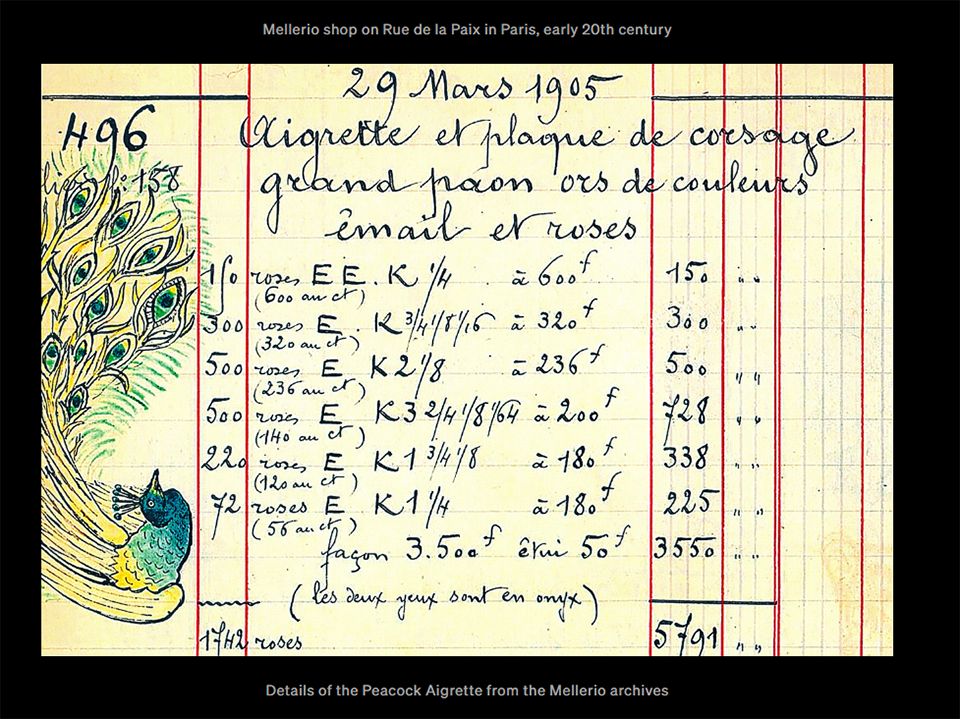 Mellerio shop on Rue de la Paix in Paris, early 20th century
29 Mars 1905
496 Aigrette et plaque de corsage
158 grand paon ors de couleurs
émail et roses
150 roses EE. K 1/4 à 600f 150 " "
(600 au ct)
300 roses E. K 3/4 1/8 1/16 à 320f 300 " "
(320 au ct)
500 roses E K 2 1/8 à 236f 500 " "
(236 au ct)
500 roses E K 3 2/4 1/8 1/64 à 200f 728 " "
(140 au ct)
220 roses E K 1 3/4 1/8 à 180f 338 " "
(120 au ct)
72 roses E K 1 1/4 à 180f 225 " "
(56 au ct)
façon 3.500f êtui 50f 3550 " "
(les deux yeux sont en onyx)
1742 roses 5791 " "
Details of the Peacock Aigrette from the Mellerio archives